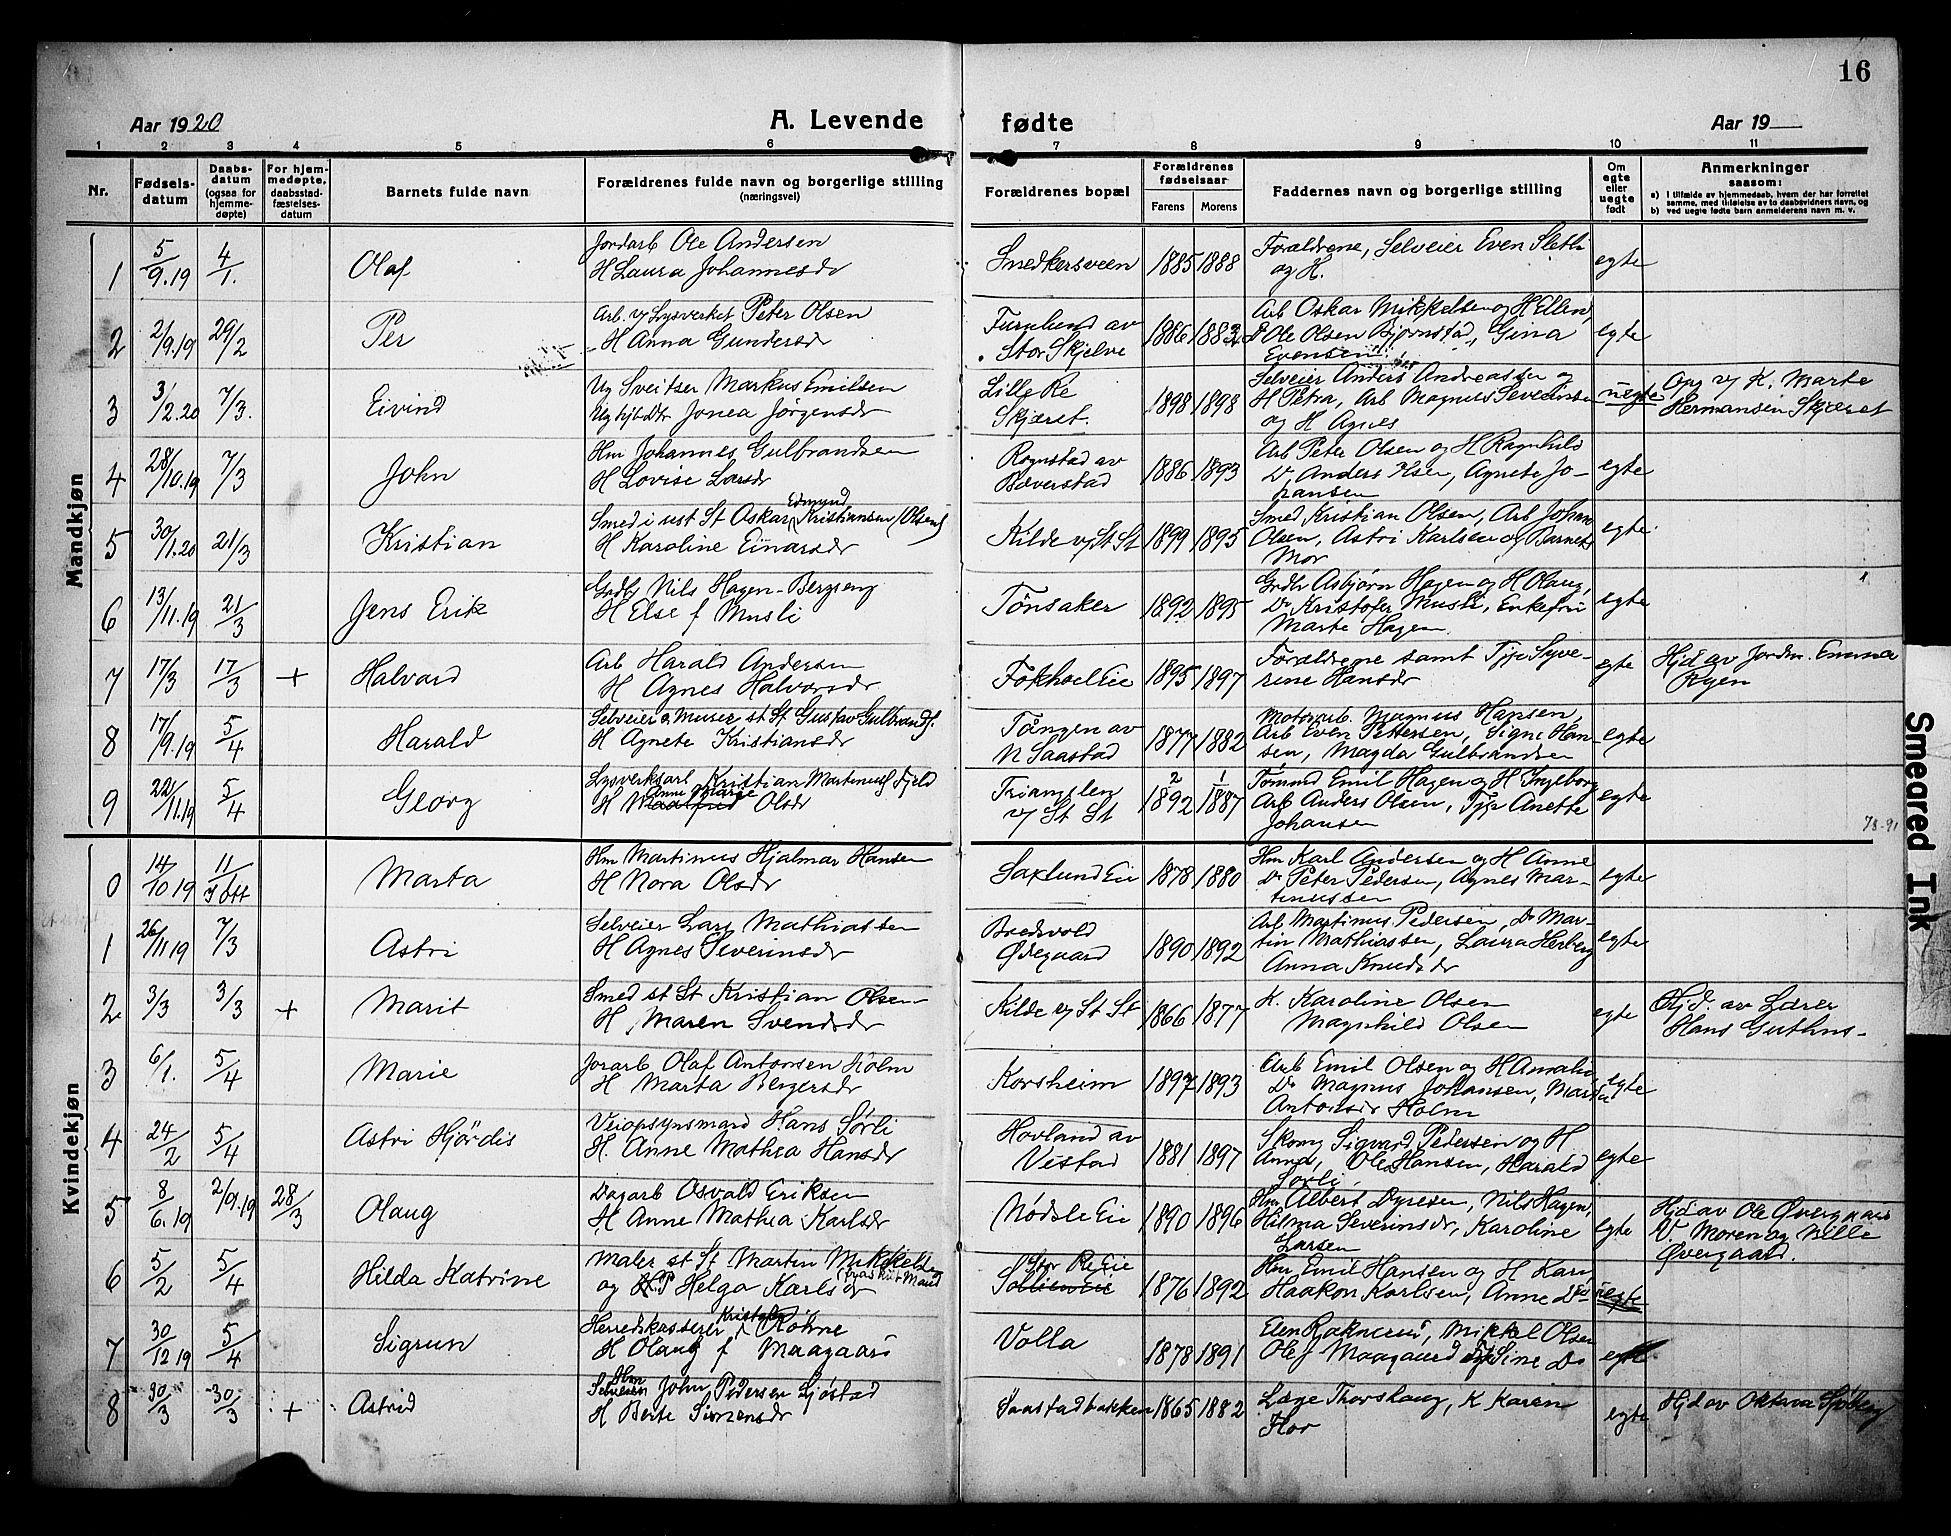 16
Aar 1920
A. Levende
fødte
Aar 19
1 2 3 4 5 6 7 8 9 10 11
Nr.
Fødsels-
datum
Daabs-
datum
(ogsaa for
hjemme-
døpte)
For hjem-
medøpte,
daabsstad-
fæstelses-
datum
Barnets fulde navn
Forældrenes fulde navn og borgerlige stilling
(næringsvei)
Forældrenes bopæl
Forældrenes
fødselsaar
Farens Morens
Faddernes navn og borgerlige stilling
Om
egte
eller
uegte
født
Anmerkninger
saasom:
a) i tilfælde av hjemmedaab, hvem der har forrettet
samme, med tilføielse av to daabsvidners navn, og
b) ved uegte fødte barn anmelderens navn m. v.
Mandkjøn
1 5/9.19 4/1. Olaf
Jordarb Ole Andersen
H Laura Johannesdr
Snedkersveen 1885 1888
Forældrene, Selveier Even Sletli
og H.
egte
2 2/9.19 29/2 Per
Arb. v/ Lysverket Peter Olsen
H Anna Gundersdr
Furulund av
Stor Skjelve
1886 1882
Arb Oskar Mikkelsen og H Ellen,
D Ole Olsen Bjørnstad, Gina
Evensen
egte
3 3/2.20 7/3. Eivind
Ug Sveitser Markus Emilsen
Ug tjt Dtr Jonea Jørgensdr
Lille Re
Skjæret.
1898 1898
Selveier Anders Andreassen og
H Petra, Arb Magnus Severinsen
og H Agnes
uegte
Opg v/ K. Marte
Hermansen Skjæret
4 28/10.19 7/3 John
Hm Johannes Gulbrandsen
H Lovise Larsdr
Rognstad av
Bæverstad
1886 1893
Arb Peter Olsen og H Ragnhild
D. Anders Olsen, Agnete Jo-
hansen
egte
5 30/1.20 21/3 Kristian
Edmund
Smed i st St Oskar Kristiansen (Olsen)
H Karoline Einarsdr
Kilde v/ St St 1899 1895
Smed Kristian Olsen, Arb Johan
Olsen, Astri Karlsen og Barnets
Mor
egte
6 13/11.19 21/3 Jens Erik
Grdbr Nils Hagen-Bergseng
H Else f Musli
Tønsaker 1892 1895
Grdbr Asbjørn Hagen og H Olaug,
Do Kristofer Musli, Enkefru
Marte Hagen
egte
7 17/3 17/3 + Halvard
Arb Harald Andersen
H Agnes Halvorsdr
Fokhol Eie 1895 1897
Forældrene samt Tjp Syve-
rine Hansdr
egte
Hjd av Jordm. Emma
Ryen
8 17/9.19 5/4 Harald
Selveier & Murer st St Gustav Gulbrands.
H Agnete Kristiansdr
Tangen av
N Saastad
1877 1882
Motorarb. Magnus Hansen,
Arb Even Pettersen, Signe Han-
sen, Magda Gulbrandsen
egte
9 22/11.19 5/4 Georg
Lysverksarb Kristian Martinus Fjeld
Anne Marie
H Olsdr
Trianglen
v/ St St
2/1892 1/1887
Tømmd Emil Hagen og H Ingeborg
Arb Anders Olsen, Tjp Anette
Johansen
egte
78-91
Kvindekjøn
0 14/10 19 11/1 Marta
Hm Martinus Hjalmar Hansen
H Nora Olsdr
Saxlund Eie 1878 1880
Hm Karl Andersen og H Anne
Do Peter Pedersen, Agnes Mar-
tinussen
egte
1 26/11 19 7/3 Astri
Selveier Lars Mathiassen
H Agnes Severinsdr
Bredvold
Ødegaard
1890 1892
Arb Martinus Pedersen, Do Mar-
tin Mathiassen, Laura Herberg
Anna Knudsdr
egte
2 3/3 3/3 + Marit
Smed st St Kristian Olsen
H. Maren Svendsdr
Kilde v/ St St 1866 1877
K. Karoline Olsen
Magnhild Olsen
egte
Hjd. av Lærer
Hans Guthus-
3 6/1. 5/4 Marie
Jorarb Olaf Antonsen Holm
H Marta Bergersdr
Korsheim 1897 1893
Arb Emil Olsen og H Amalie
Do Magnus Johansen, Martha
Antonsdr Holm
egte
4 24/2 5/4 Astri Hjördis
Veiopsynsmand Hans Sørli
H. Anne Mathea Hansdr
Hovland av
Vestad
1881 1897
Skomg Sigvard Pedersen og H
Anna, Ole Hansen, Harald
Sørli
egte
5 8/6.19 2/9.19 28/3 Olaug
Dagarb Osvald Eriksen
H Anne Mathea Karlsdr
Nødsle Eie 1890 1896
Hm Albert Dyresen, Nils Hagen,
Hilma Severinsdr, Karoline
Larsen
egte
Hjd av Ole Øvergaard
V. Moren og Nille
Øvergaard.
6 5/2 5/4 Hilda Katrine
Maler st St Martin Mikkelsen
og P Helga Karlsdr (fraskilt Mand)
Stor Re Eie
1876 1892
Hm Emil Hansen og H Kari,
Haakon Karlsen, Anne Do
uegte
7 30/12 19 5/4 Sigrun
Kristofer
Herredskasserer Røhne
H Olaug f Maagaard
Volla 1878 1891
Elen Raknerud, Mikkel Olsen
Olef Maagaard Sine Do
egte
8 30/3 30/3 + Astrid
Hm
Selveier John Pedersen Sjøstad
H Berte Simensdr
Saastadbakken 1865 1882
Læge Thorshaug, K Karen
Flor
egte
Hjd av Oktava Sjøberg
Smeared Ink